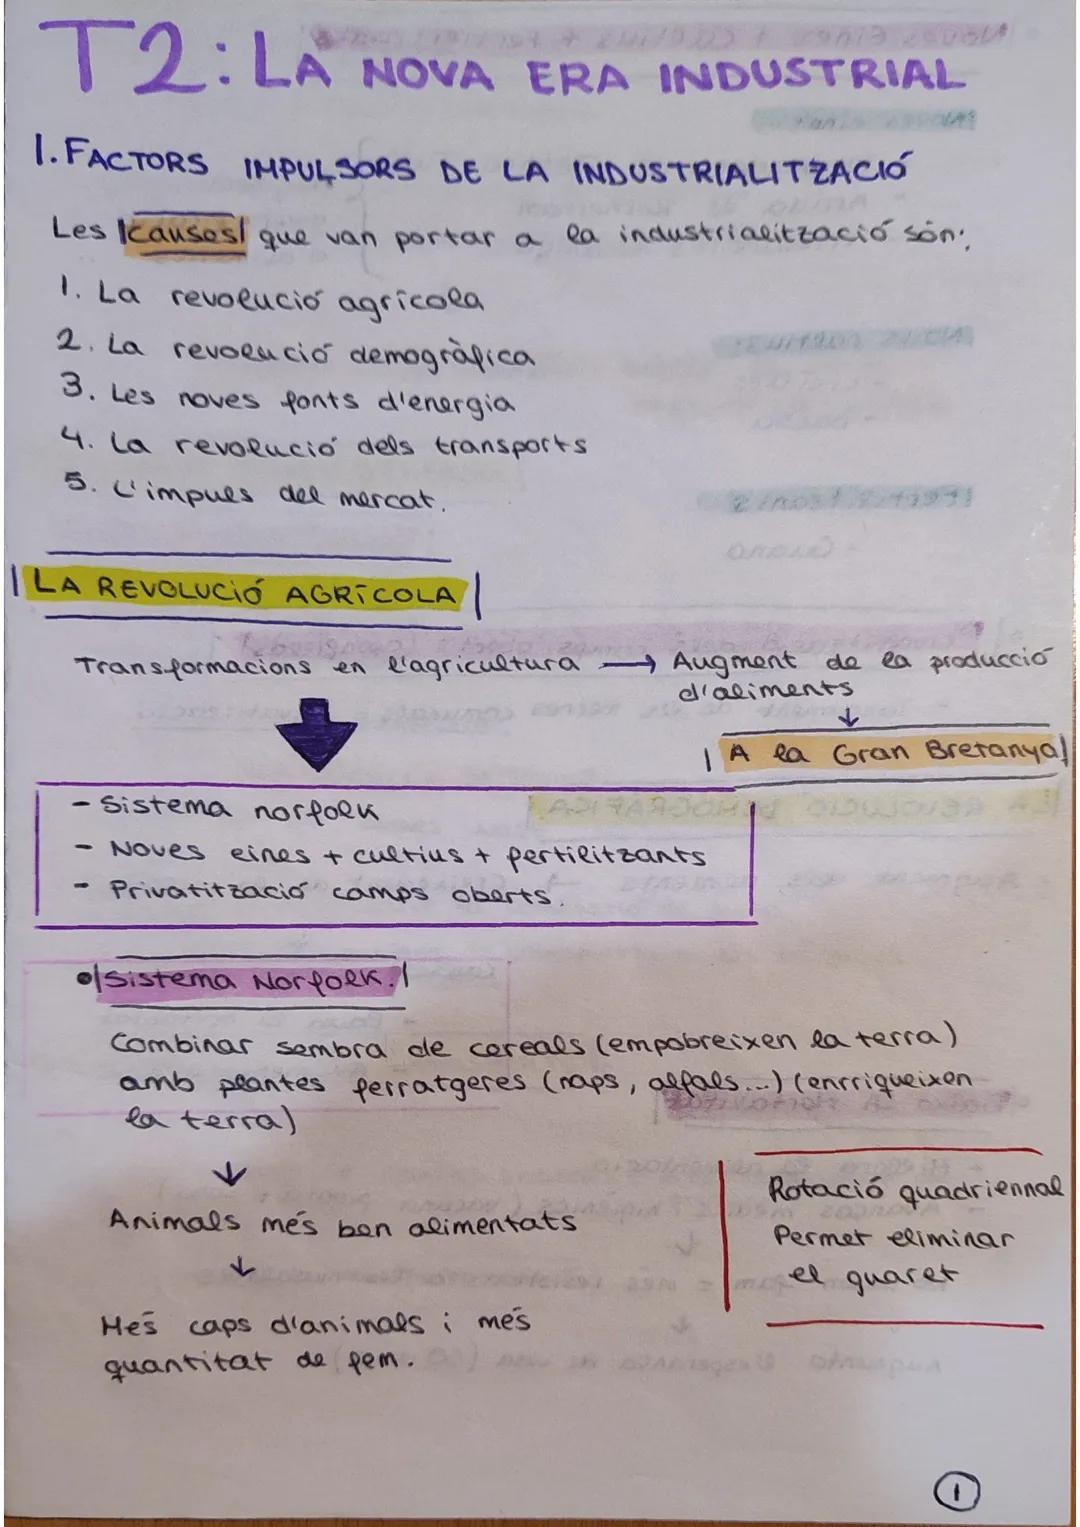 T2: LA NOVA ERA INDUSTRIAL
1. FACTORS IMPULSORS DE LA INDUSTRIALITZACIÓ
Les causes que van portar a la industrialització són:
1. La revolució agrícola
2. La revolució demogràfica
3. Les noves fonts d'energia
4. La revolució dels transports
5. L'impuls del mercat.
LA REVOLUCIÓ AGRÍCOLA
Transformacions en l'agricultura → Augment de la producció
d'aliments
↓
A la Gran Bretanya
- Sistema norfolk
- Noves eines + cultius + fertilitzants
- Privatització camps oberts.
• Sistema Norfolk.
Combinar sembra de cereals (empobreixen la terra)
amb plantes ferratgeres (naps, alfals...) (enrriqueixen
la terra)
↓
Animals més ben alimentats
↓
Més caps d'animals i més
quantitat de fem.
Rotació quadriennal
Permet eliminar
el guaret
1